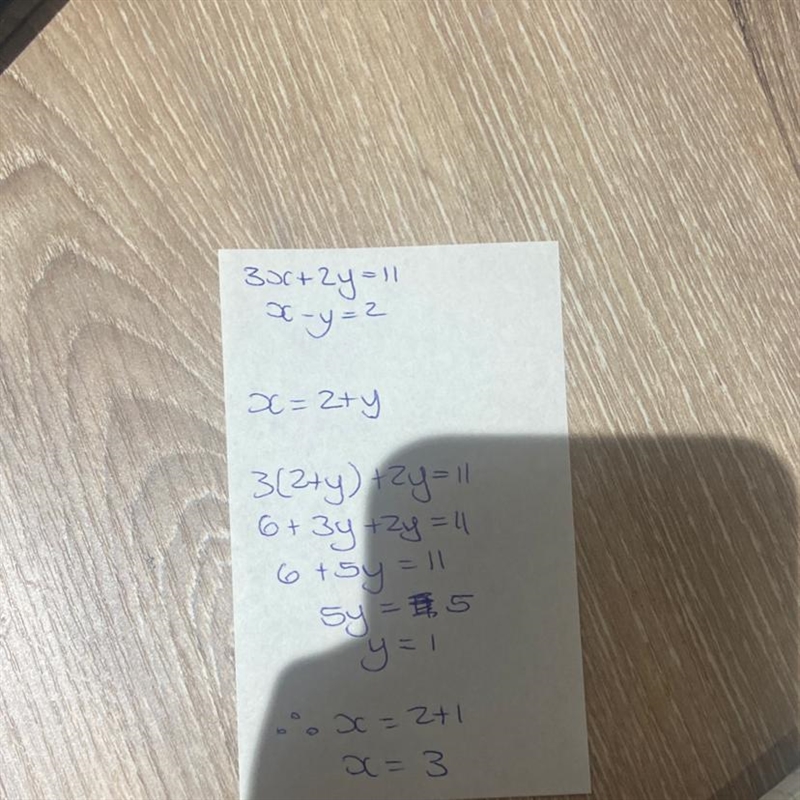 3x+2y=11
x-y=2
x=2+y
3(2+y)+2y=11
6+3y+2y=11
6+5y=11
5y=5
y=1
∴ x=2+1
x=3